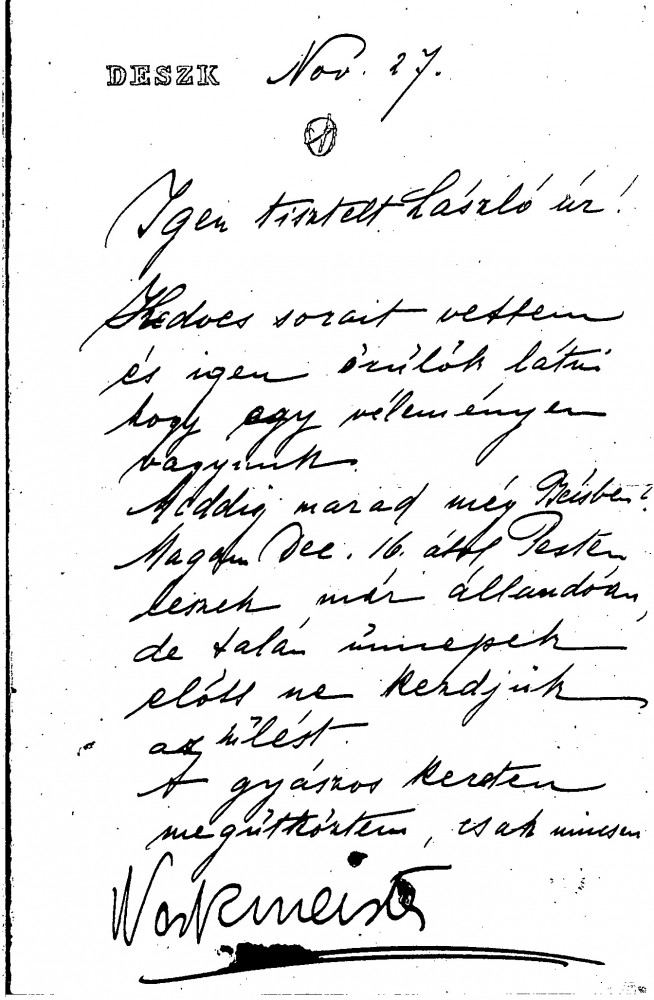 DESZK Nov. 27.
Igen tisztelt László úr!
Kedves sorait vettem
és igen örülök látni
hogy egy véleményen
vagyunk.
Meddig marad még Bécsben?
Magam Dec. 16. ától Pesten
leszek már állandóan,
de talán ünnepek
előtt ne kezdjük
az ülést.
A gyászos kereten
megütköztem, csak nincsen